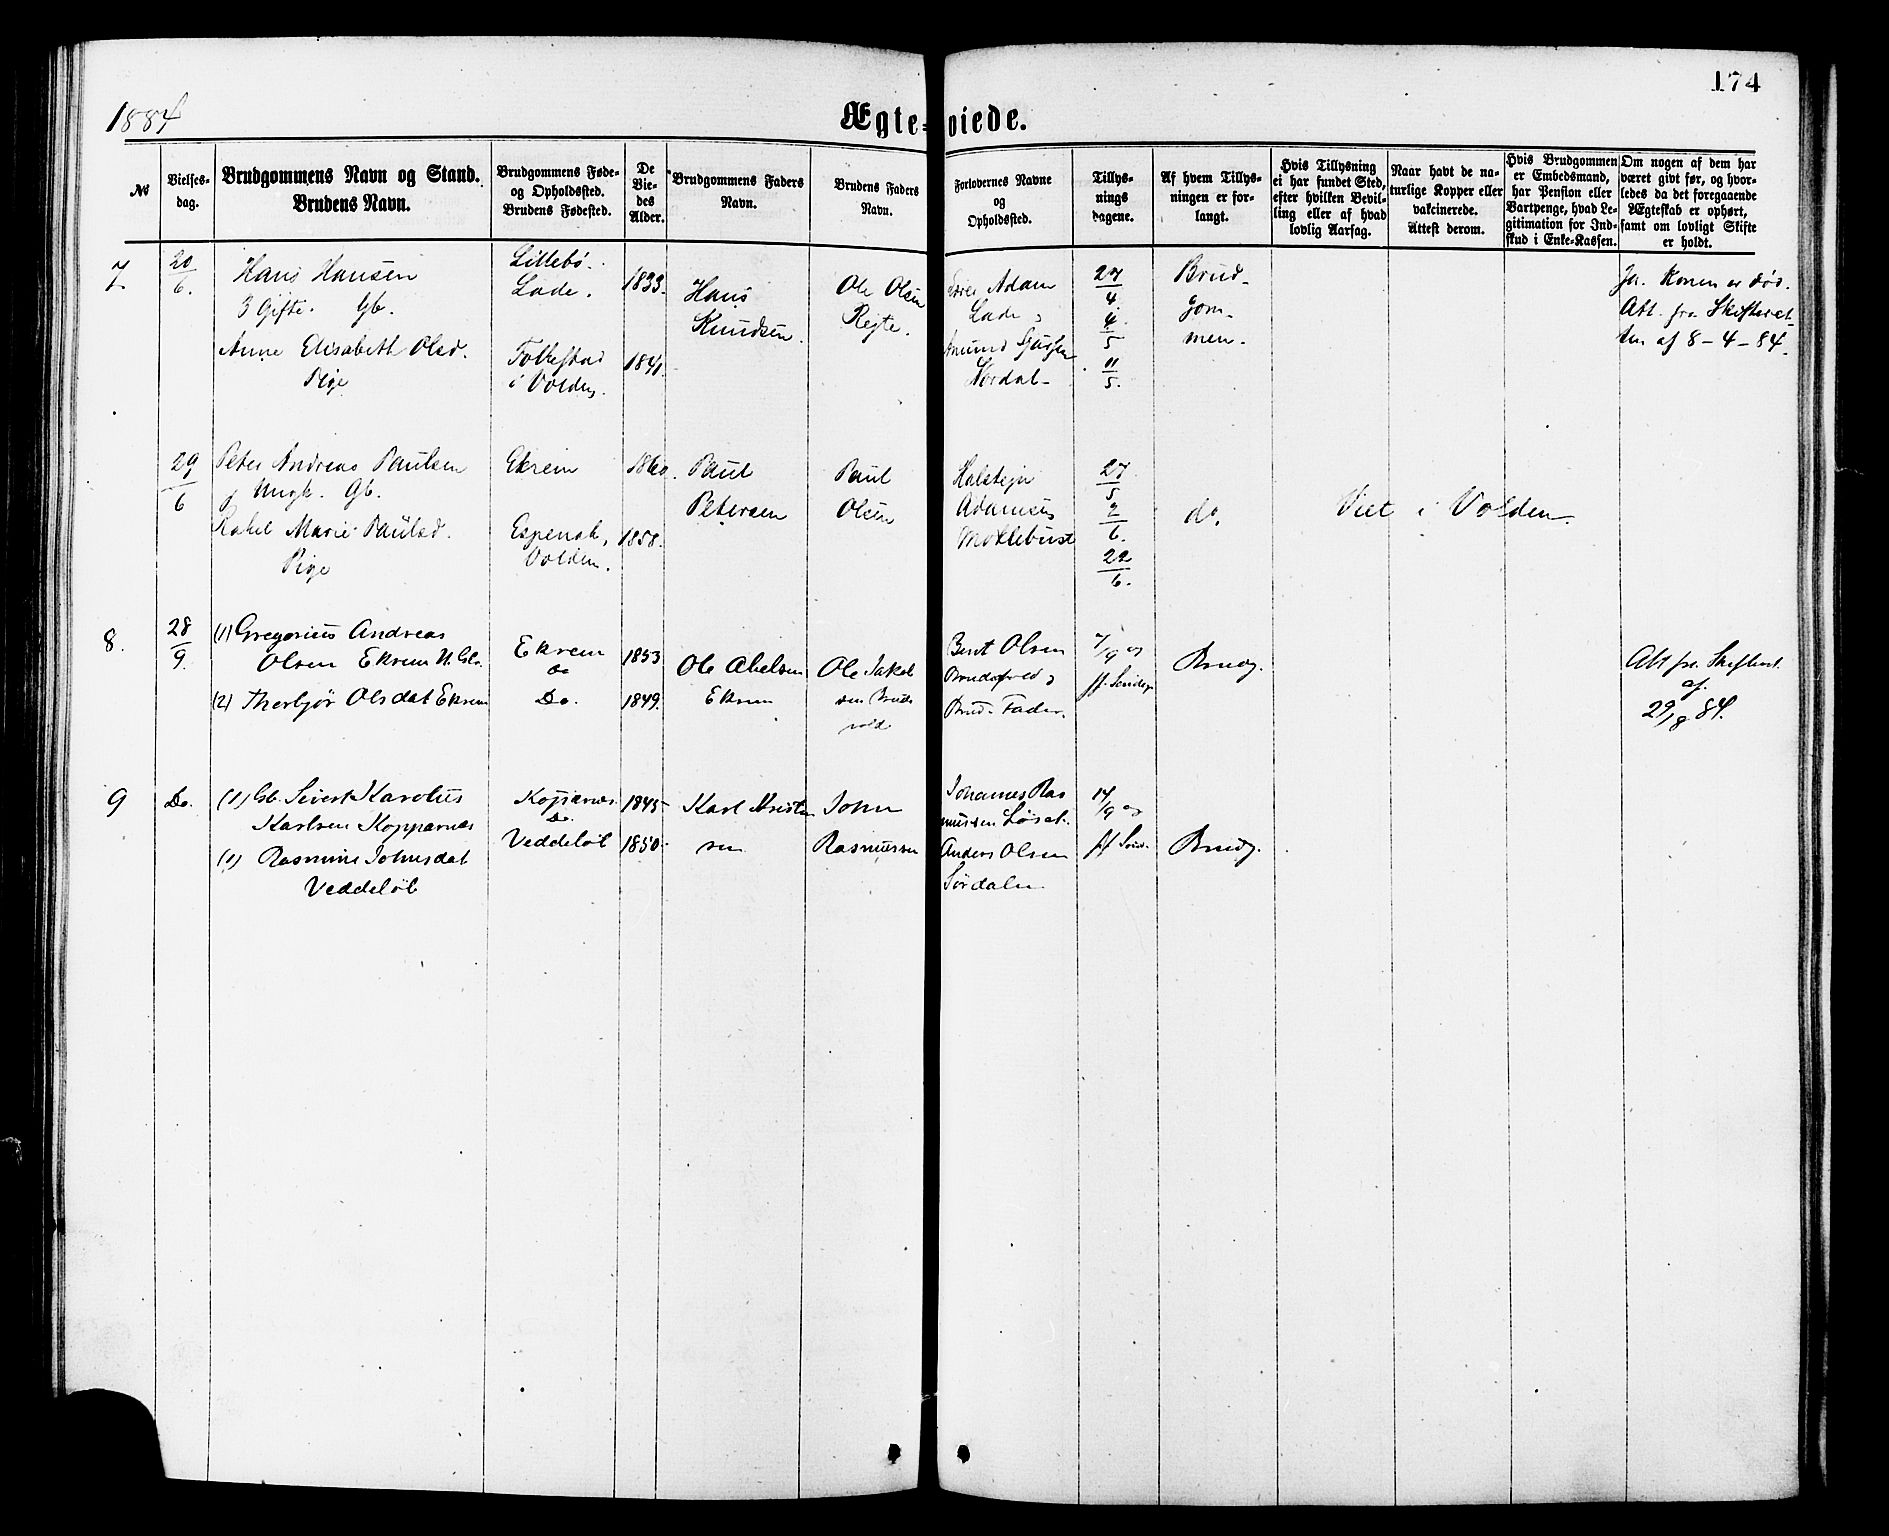 174
1884
Ægte-viede.
№
Vielses-
dag.
Brudgommens Navn og Stand.
Brudens Navn.
Brudgommens Føde-
og Opholdssted.
Brudens Fødested.
De
Vie-
des
Alder.
Brudgommens Faders
Navn.
Brudens Faders
Navn.
Forlovernes Navne
og
Opholdssted.
Tillys-
nings
dagene.
Af hvem Tillys-
ningen er for-
langt.
Hvis Tillysning
ei har fundet Sted,
efter hvilken Bevil-
ling eller af hvad
lovlig Aarsag.
Naar havt de na-
turlige Kopper eller
vakcinerede.
Attest derom.
Hvis Brudgommen
er Embedsmand,
har Pension eller
Vartpenge, hvad Le-
gitimation for Ind-
skud i Enke-Kassen.
Om nogen af dem har
været givt før, og hvor-
ledes da det foregaaende
Ægteskab er ophørt,
samt om lovligt Skifte
er holdt.
7
20
6.
Hans Hansen
3 Gifte. Gb.
Anne Elisabeth Olsd.
Pige
Lillebø.
Lade.
Folkestad
i Volden.
1833.
1841.
Hans
Knudsen.
Ole Olsen
Rejte.
Adam
Lade
Amund
Nordal
27
4
4
5
11
5.
Brud-
gom-
men.
Ja. Konen er død.
Att. fra Skifteret-
ten af 8-4-84.
29
6
Peter Andreas Paulsen
Ungk. Gb.
Rakel Marie Paulsd.
Pige
Ekrem
Espenak,
Volden.
1860.
1858.
Paul
Petersen
Paul
Olsen
Halstejn
Adamsen
Moltebust
27
5
2
6.
22
6.
do.
Viet i Volden.
8.
28
9.
(1) Gregorius Andreas
Olsen Ekrem
(2) Therbjør Olsdat Ekrem
Ekrem
Do.
1853
1849.
Ole Abelsen
Ekrem
Ole Jakob
sen Bruds
vold
Bent Olsen
Brud. Fader.
7/9 og
ff. Søndage
Brudg.
Att fra Skifteret
af
29/8 84.
9
Do.
(1) Gb. Sivert Karolus
Karlsen Kopparnæs
(1) Rasmine Johnsdat
Veddeløb
Koparnæs
Do.
Veddeløb
1845
1850
Karl Kristen
sen
John
Rasmussen
Johannes Ras
mussen Løset.
Anders Olsen
Sørdalen
14
/9 og
ff Sønd.
Brudg.